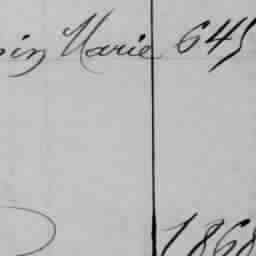 in Marie 645
1868